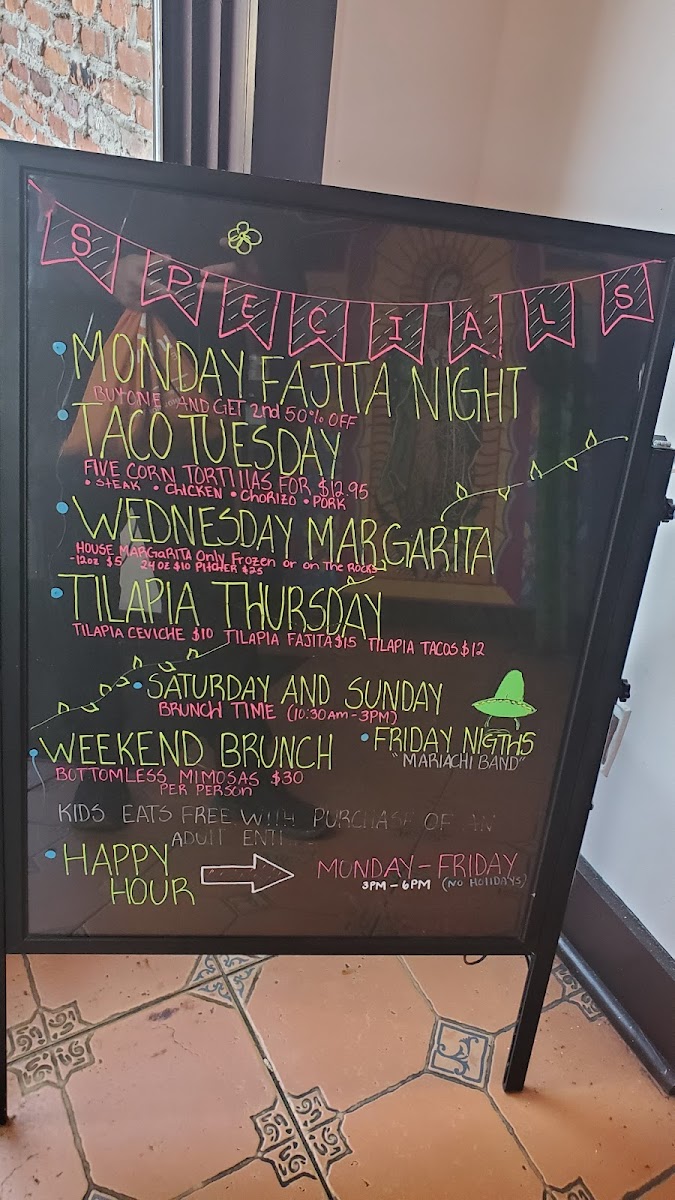 SPECIALS
MONDAY FAJITA NIGHT
BUY ONE AND GET 2nd 50% OFF
TACO TUESDAY
FIVE CORN TORTILLAS FOR $12.95
• STEAK • CHICKEN • CHORIZO • PORK
WEDNESDAY MARGARITA
HOUSE MARGARITA Only Frozen or on The Rocks
-12oz $5 24oz $10 PITCHER $25
TILAPIA THURSDAY
TILAPIA CEVICHE $10 TILAPIA FAJITA $15 TILAPIA TACOS $12
SATURDAY AND SUNDAY
BRUNCH TIME (10:30am-3PM)
WEEKEND BRUNCH
BOTTOMLESS MIMOSAS $30
PER PERSON
FRIDAY NIGTHS
"MARIACHI BAND"
KIDS EATS FREE WITH PURCHASE OF AN
ADULT
HAPPY
HOUR
MUNDAY-FRIDAY
3PM-6PM (NO HOLIDAYS)